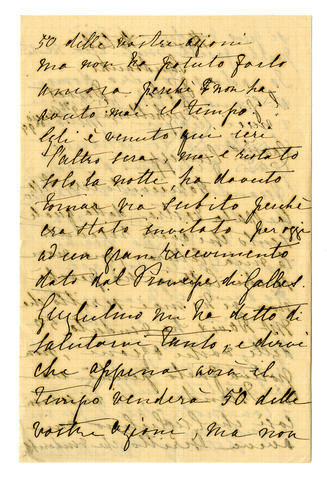 50 delle vostre azioni
ma non ha potuto farlo
ancora perchè non ha
avuto mai il tempo.
Egli è venuto qui ieri
l'altro sera, ma è restato
solo la notte, ha dovuto
tornar via subito perchè
era stato invitato per oggi
ad un gran ricevimento
dato dal Principe di Galles.
Guglielmo mi ha detto di
salutarvi tanto, e dirvi
che appena avrà il
tempo venderà 50 delle
vostre azioni, ma non